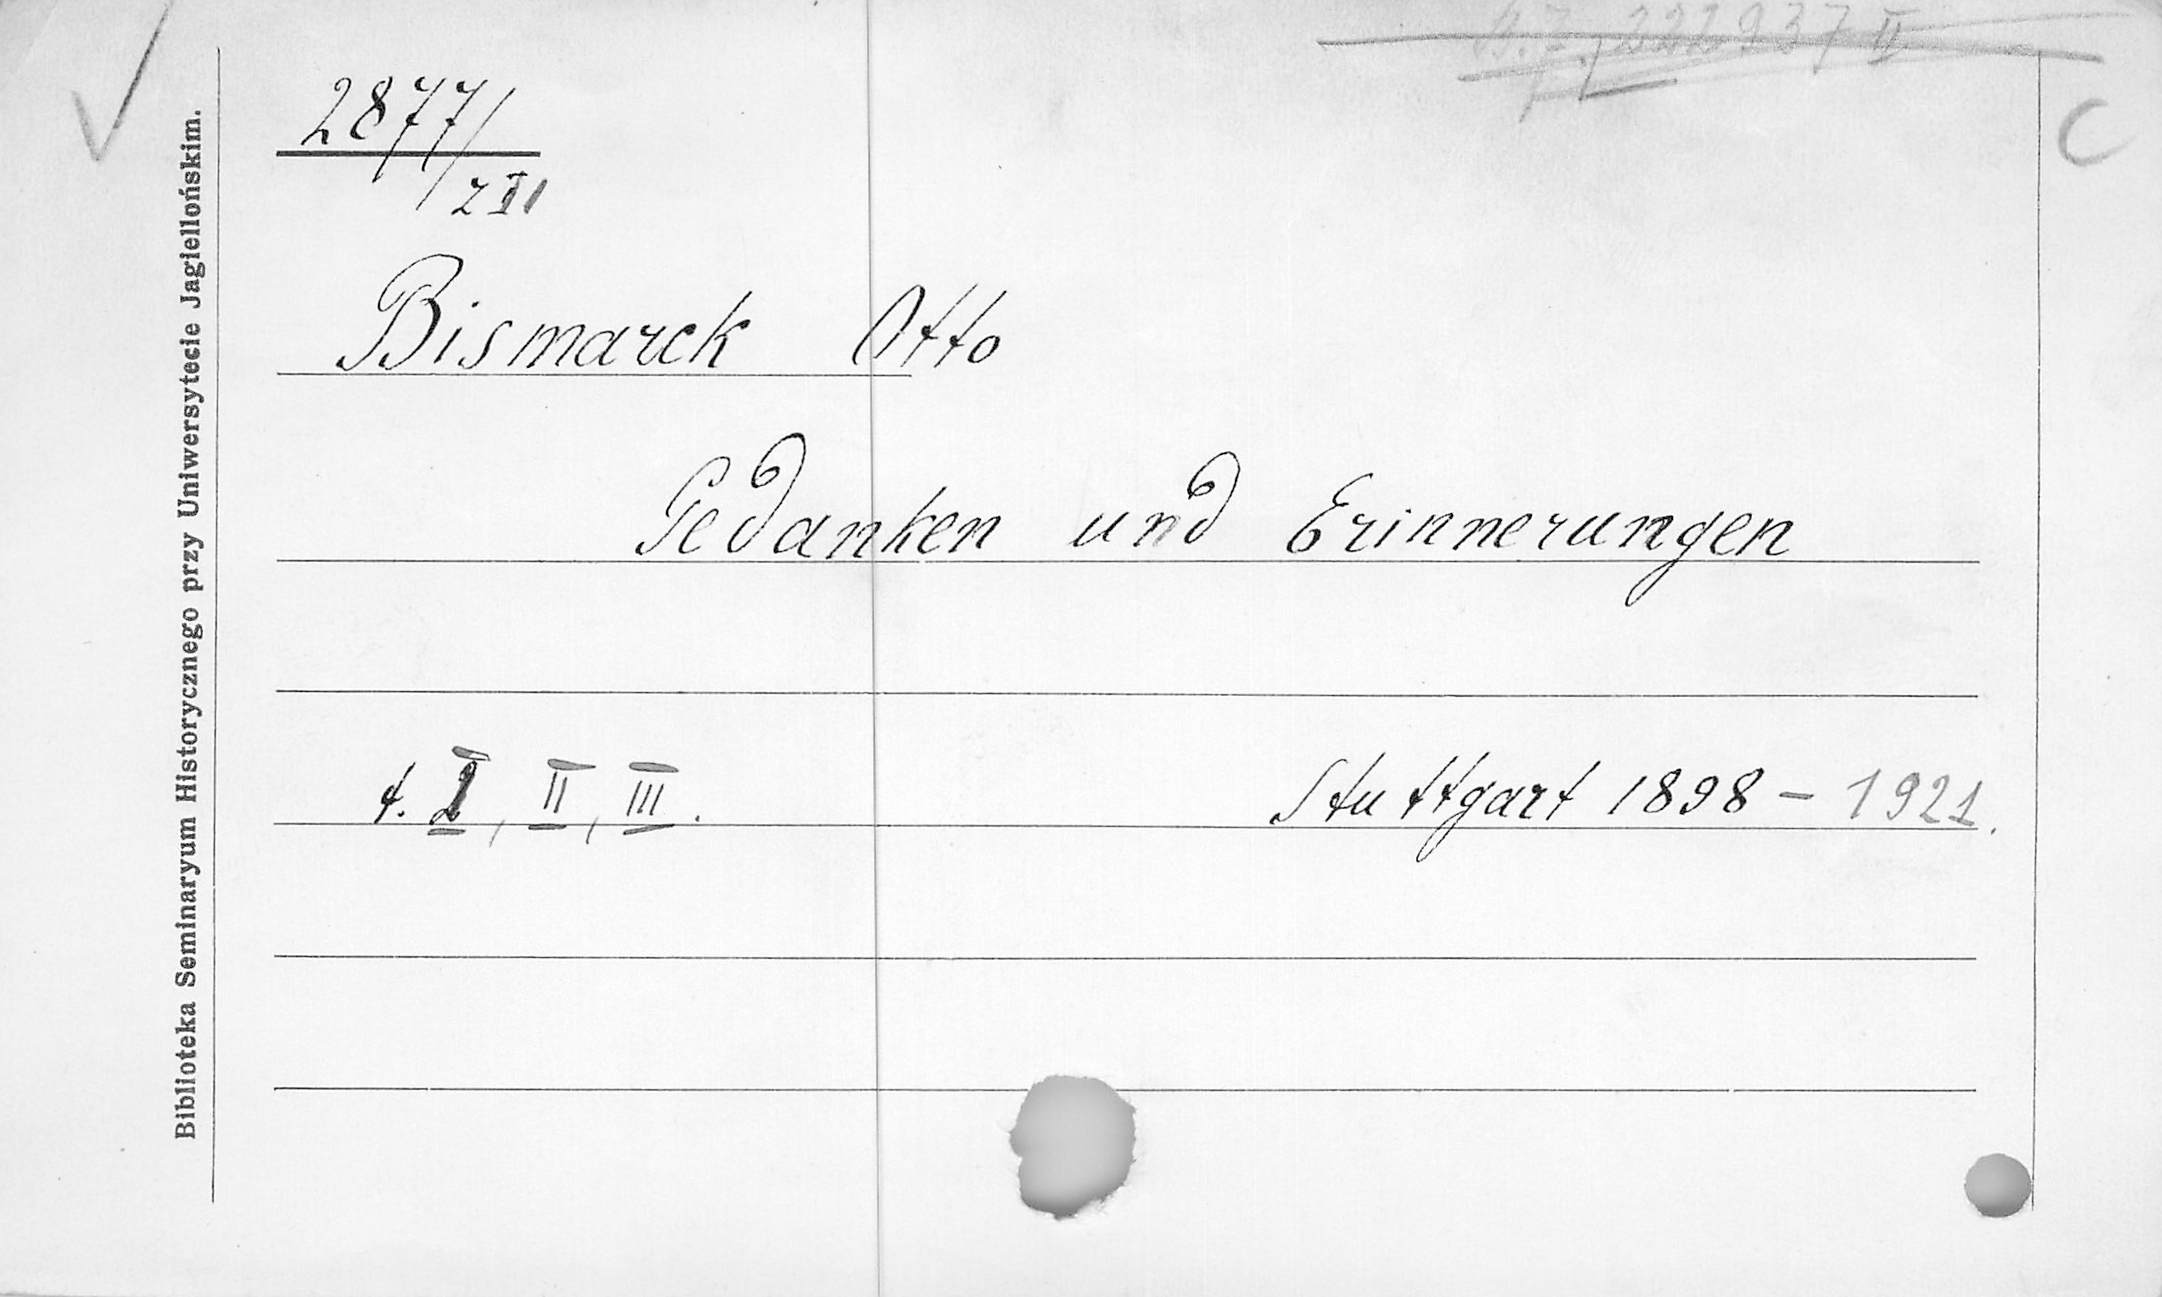 222937 II
C
2877/
z III
Bismarck Otto
Gedanken und Erinnerungen
t. I, II, III. Stuttgart 1898 – 1921.
Biblioteka Seminaryum Historycznego przy Uniwersytecie Jagiellońskim.